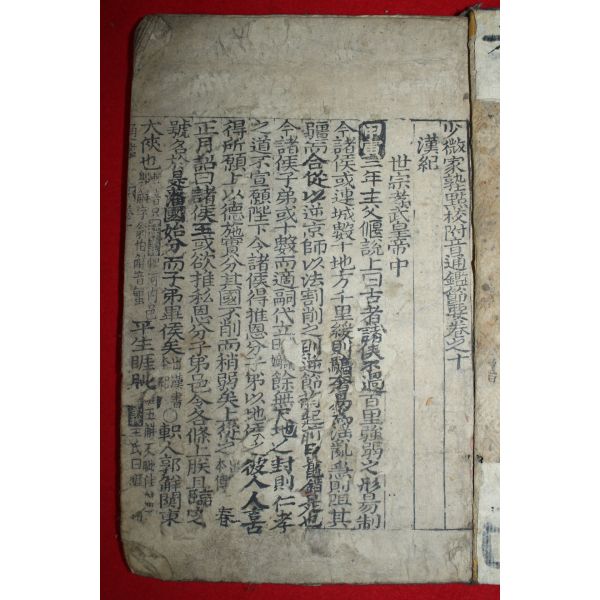 少微家塾點校附音通鑑節要卷之十
漢紀
世宗孝武皇帝中
甲寅二年主父偃說上曰古者諸侯不過百里強弱之形易制
今諸侯或連城數十地方千里緩則驕奢易爲淫亂急則阻其
彊而合從以逆京師以法割削之則逆節萌起前日鼂錯是也
今諸侯子弟或十數而適嗣代立餘無尺地之封則仁孝
之道不宣願陛下令諸侯得推恩分子弟以地侯之彼人人喜
得所願上以德施實分其國不削而稍弱矣上從之 出本傳 春
正月詔曰諸侯王或欲推私恩分子弟邑令各條上朕且臨定
號名於是藩國始分而子弟畢侯矣 出漢書本紀 ○軹人郭解關東
大俠也 平生睚眦